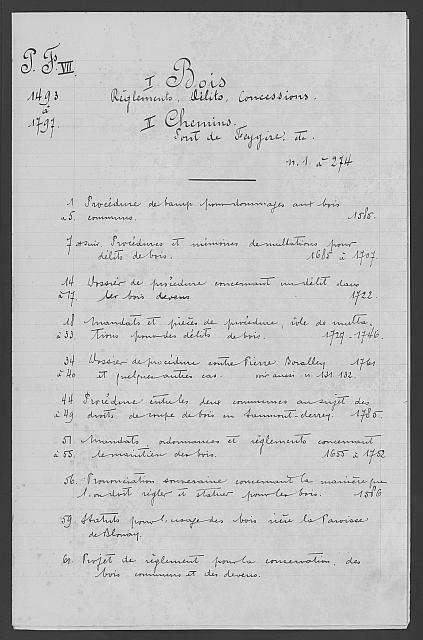 P. Fs. VII.
1493
à
1797.
I Bois
Règlements, Délits, Concessions.
II Chemins.
Pont de Feygire. etc.
n. 1 à 274
1 Procédure de bamp pour dommages aux bois
à 5. communes. 1585.
7 et suiv. Procédures et mémoires de multations pour
délits de bois. 1685 à 1707
14 Dossier de procédure concernant un délit dans
à 17 les bois devens 1722.
18 Mandats et pièces de procédure, rôle de multa-
à 33 tions pour des délits de bois. 1729-1746.
34 Dossier de procédure contre Pierre 1761
à 40 et quelques autres cas. voir aussi n. 131. 132.
44 Procédure entre les deux communes au sujet des
à 49 droits de coupe de bois en Saumont-derrey. 1785.
51 Mandats, ordonnances et règlements concernant
à 55. le maintien des bois. 1655 à 1752
56. Prononciation souveraine concernant la manière que
l'on doit régler et statuer pour les bois. 1586
59 Statuts pour l'usage des bois rière la Paroisse
de Blonay.
61. Projet de règlement pour la conservation des
bois communs et des devens.